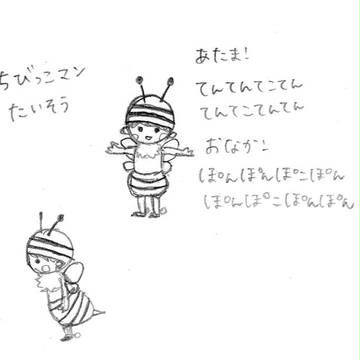 ちびっこマン
たいそう
あたま!
てんてんてこてん
てんてこてんてん
おなか!
ぽんぽんぽこぽん
ぽんぽこぽんぽん